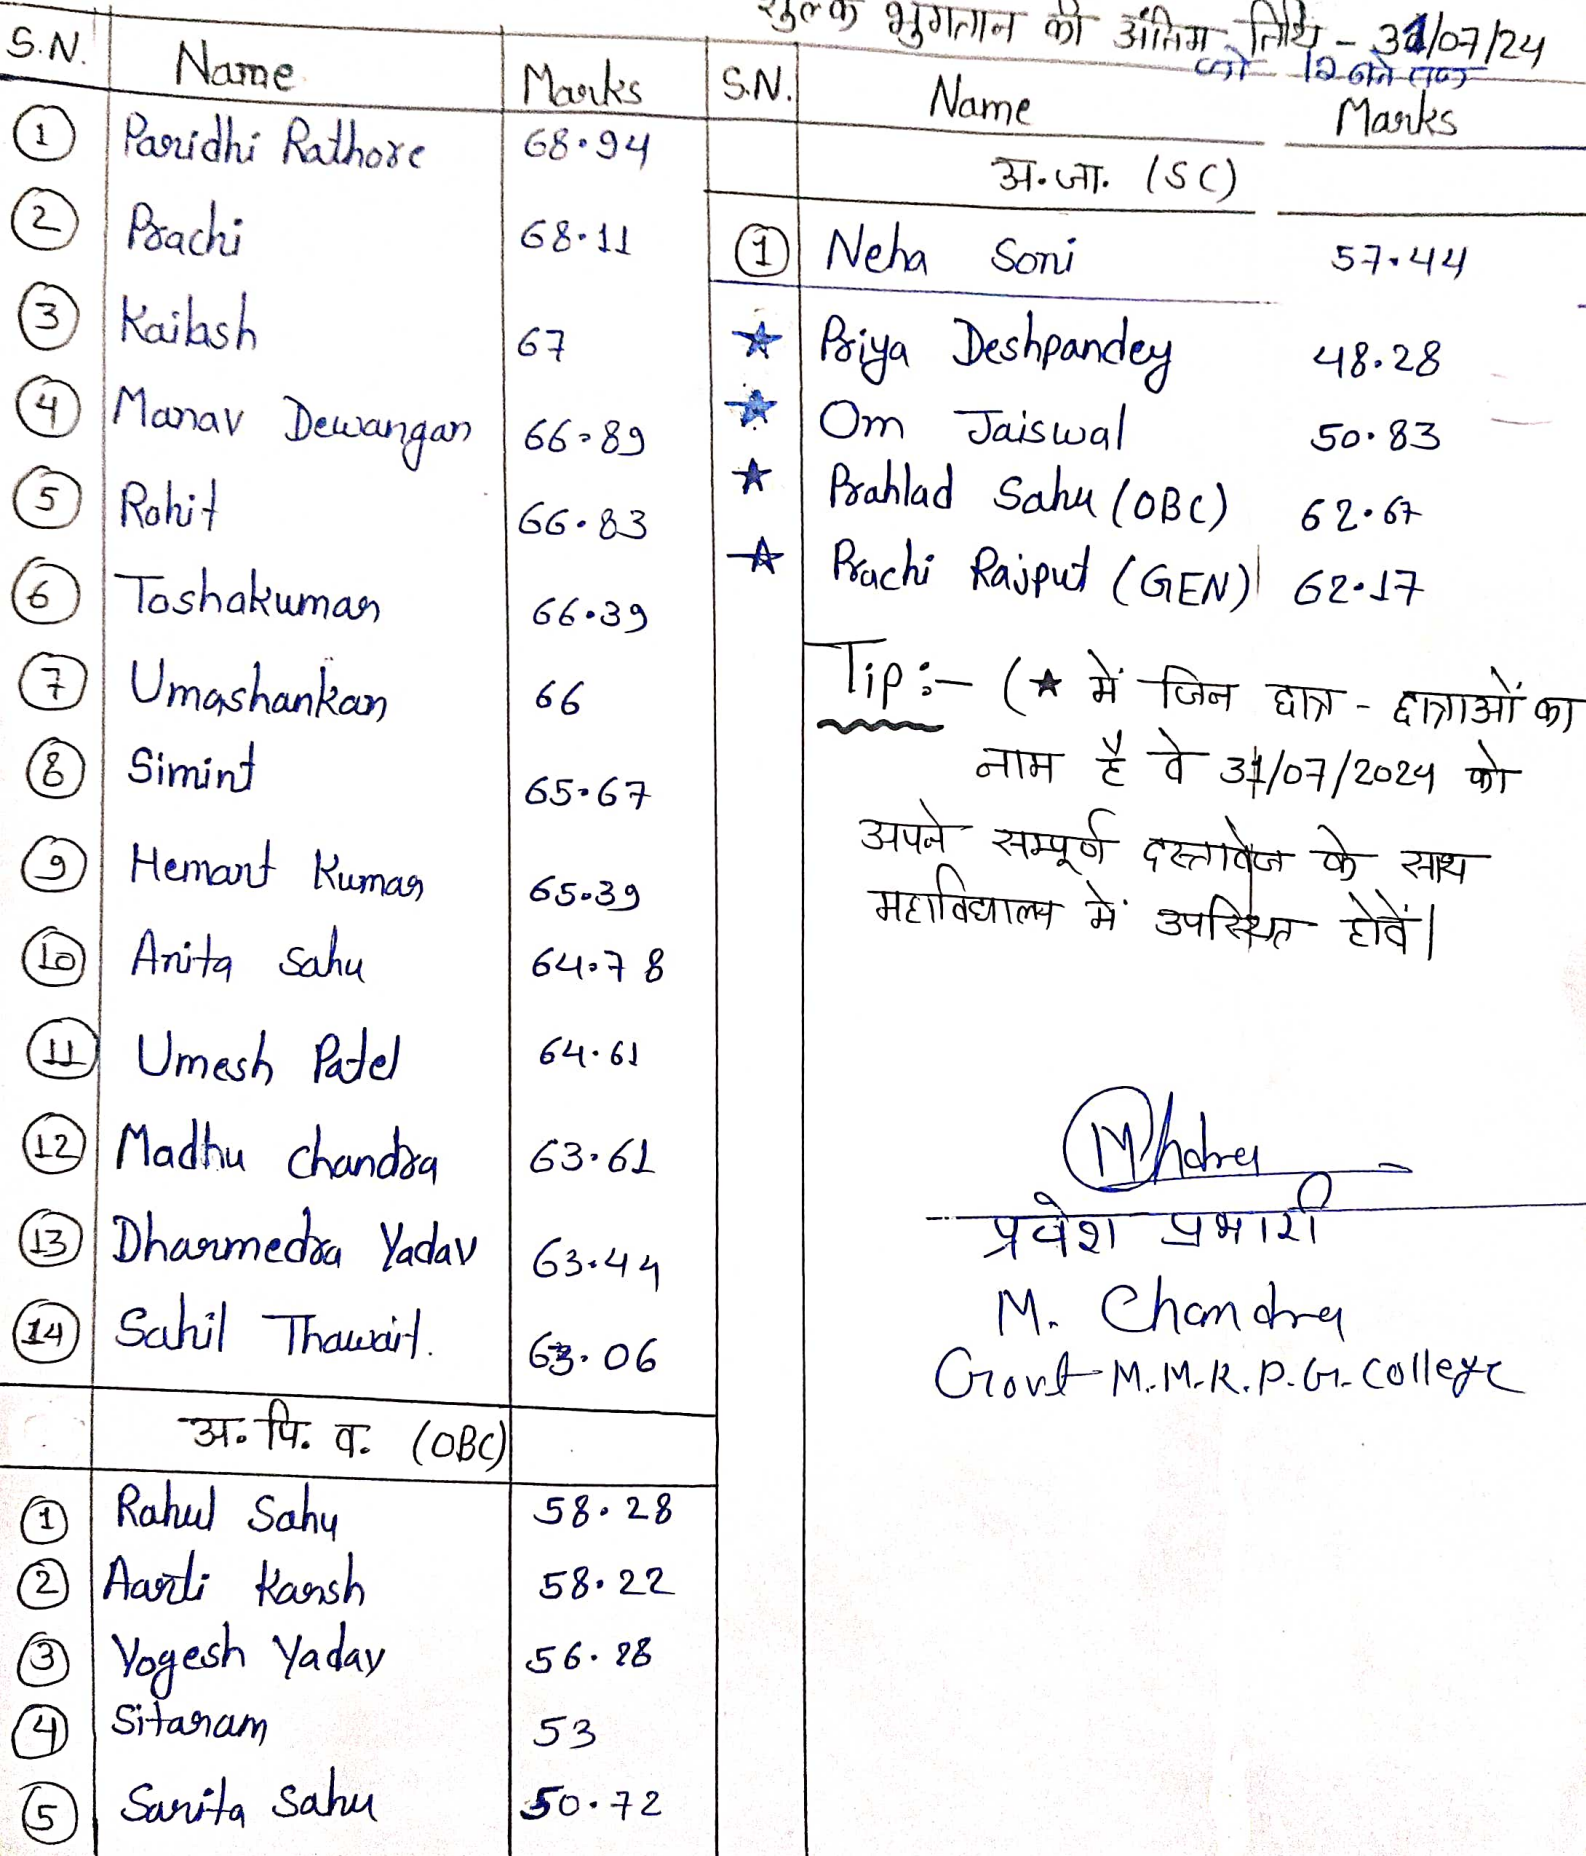 शुल्क भुगतान की अंतिम तिथि - 31/07/24
को 12 बजे तक
S.N. Name Marks
1 Paridhi Rathore 68.94
2 Prachi 68.11
3 Kailash 67
4 Manav Dewangan 66.89
5 Rohit 66.83
6 Toshakumar 66.39
7 Umashankar 66
8 Simint 65.67
9 Hemant Kumar 65.39
10 Anita Sahu 64.78
11 Umesh Patel 64.61
12 Madhu chandra 63.61
13 Dharmedra Yadav 63.44
14 Sahil Thawait. 63.06
अ. पि. व. (OBC)
1 Rahul Sahu 58.28
2 Aarti Karsh 58.22
3 Yogesh Yadav 56.28
4 Sitaram 53
5 Sarita Sahu 50.72
S.N. Name Marks
अ.जा. (SC)
1 Neha Soni 57.44
★ Priya Deshpandey 48.28
★ Om Jaiswal 50.83
★ Prahlad Sahu (OBC) 62.67
★ Prachi Rajput (GEN) 62.17
Tip :- (★ में जिन छात्र - छात्राओं का
नाम है वे 31/07/2024 को
अपने सम्पूर्ण दस्तावेज के साथ
महाविद्यालय में उपस्थित होवें।
प्रवेश प्रभारी
M. Chandra
Govt M.M.R.P.G. College